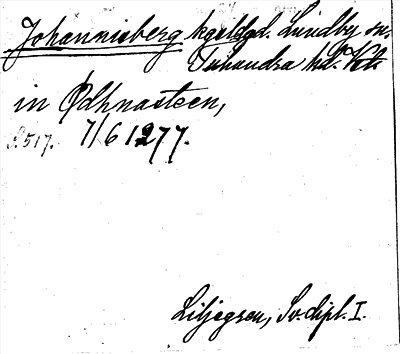 Johannisberg hgdsbgd. Lundby sn.
Tuhundra hd. Vstm
in Ødhnasteen,
S. 517. 7/6 1277.
Liljegren, Sv. dipl. I.